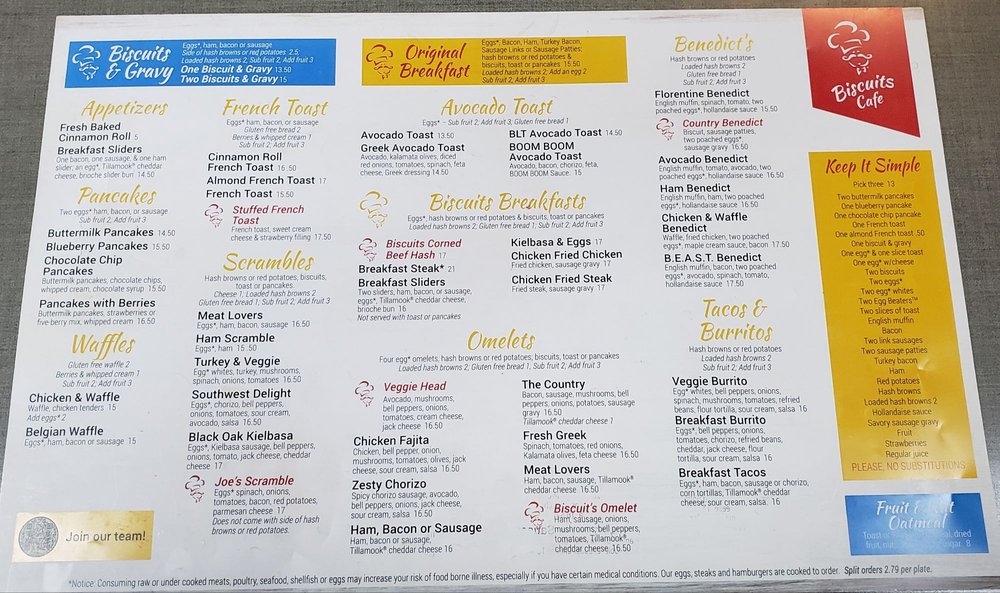 Biscuits
& Gravy
Eggs*, ham, bacon or sausage
Side of hash browns or red potatoes 2.5;
Loaded hash browns 2; Sub fruit 2; Add fruit 3
One Biscuit & Gravy 13.50
Two Biscuits & Gravy 15
Appetizers
Fresh Baked
Cinnamon Roll 5
Breakfast Sliders
One bacon, one sausage, & one ham
slider; an egg*, Tillamook® cheddar
cheese, brioche slider bun 14.50
Pancakes
Two eggs* ham, bacon, or sausage
Sub fruit 2; Add fruit 3
Buttermilk Pancakes 14.50
Blueberry Pancakes 15.50
Chocolate Chip
Pancakes
Buttermilk pancakes, chocolate chips,
whipped cream, chocolate syrup 15.50
Pancakes with Berries
Buttermilk pancakes, strawberries or
five-berry mix, whipped cream 16.50
Waffles
Gluten free waffle 2
Berries & whipped cream 1
Sub fruit 2; Add fruit 3
Chicken & Waffle
Waffle, chicken tenders 15
Add eggs* 2
Belgian Waffle
Eggs*, ham, bacon or sausage 15
Join our team!
French Toast
Eggs* ham, bacon, or sausage
Gluten free bread 2
Berries & whipped cream 1
Sub fruit 2; Add fruit 3
Cinnamon Roll
French Toast 16.50
Almond French Toast 17
French Toast 15.50
Stuffed French
Toast
French toast, sweet cream
cheese & strawberry filling 17.50
Scrambles
Hash browns or red potatoes, biscuits,
toast or pancakes.
Cheese 1; Loaded hash browns 2
Gluten free bread 1; Sub fruit 2; Add fruit 3
Meat Lovers
Eggs*, ham, bacon, sausage 16.50
Ham Scramble
Eggs*, ham 15.50
Turkey & Veggie
Egg* whites, turkey, mushrooms,
spinach, onions, tomatoes 16.50
Southwest Delight
Eggs*, chorizo, bell peppers,
onions, tomatoes, sour cream,
avocado, salsa 16.50
Black Oak Kielbasa
Eggs*, Kielbasa sausage, bell peppers,
onions, tomato, jack cheese, cheddar
cheese 17
Joe's Scramble
Eggs* spinach, onions,
tomatoes, bacon, red potatoes,
parmesan cheese 17
Does not come with side of hash
browns or red potatoes.
Original
Breakfast
Eggs*, Bacon, Ham, Turkey Bacon,
Sausage Links or Sausage Patties;
hash browns or red potatoes &
biscuits, toast or pancakes 15.50
Loaded hash browns 2; Add an egg 2
Sub fruit 2; Add fruit 3
Avocado Toast
Eggs* – Sub fruit 2; Add fruit 3; Gluten free bread 1
Avocado Toast 13.50
Greek Avocado Toast
Avocado, kalamata olives, diced
red onions, tomatoes, spinach, feta
cheese, Greek dressing 14.50
BLT Avocado Toast 14.50
BOOM BOOM
Avocado Toast
Avocado, bacon, chorizo, feta,
BOOM BOOM Sauce. 15
Biscuits Breakfasts
Eggs*, hash browns or red potatoes & biscuits, toast or pancakes
Loaded hash browns 2; Gluten free bread 1; Sub fruit 2; Add fruit 3
Biscuits Corned
Beef Hash 17
Breakfast Steak* 21
Breakfast Sliders
Two sliders, ham, bacon, or sausage,
eggs*, Tillamook® cheddar cheese,
brioche bun 16
Not served with toast or pancakes
Kielbasa & Eggs 17
Chicken Fried Chicken
Fried chicken, sausage gravy 17
Chicken Fried Steak
Fried steak, sausage gravy 17
Omelets
Four egg* omelets, hash browns or red potatoes; biscuits, toast or pancakes
Loaded hash browns 2; Gluten free bread 1, Sub fruit 2; Add fruit 3
Veggie Head
Avocado, mushrooms,
bell peppers, onions,
tomatoes, cream cheese,
jack cheese 16.50
Chicken Fajita
Chicken, bell pepper, onion,
mushrooms, tomatoes, olives, jack
cheese, sour cream, salsa 16.50
Zesty Chorizo
Spicy chorizo sausage, avocado,
bell peppers, onions, jack cheese,
sour cream, salsa 16.50
Ham, Bacon or Sausage
Ham, bacon or sausage,
Tillamook® cheddar cheese 16
The Country
Bacon, sausage, mushrooms, bell
peppers, onions, potatoes, sausage
gravy 16.50
Tillamook® cheddar cheese 1
Fresh Greek
Spinach, tomatoes, red onions,
Kalamata olives, feta cheese 16.50
Meat Lovers
Ham, bacon, sausage, Tillamook®
cheddar cheese 16.50
Biscuit's Omelet
Ham, sausage, onions,
mushrooms, bell peppers,
tomatoes, Tillamook®
cheddar cheese 16.50
Benedict's
Hash browns or red potatoes
Loaded hash browns 2
Gluten free bread 1
Sub fruit 2; Add fruit 3
Florentine Benedict
English muffin, spinach, tomato, two
poached eggs*, hollandaise sauce 15.50
Country Benedict
Biscuit, sausage patties,
two poached eggs*,
sausage gravy 16.50
Avocado Benedict
English muffin, tomato, avocado, two
poached eggs*, hollandaise sauce 16.50
Ham Benedict
English muffin, ham, two poached
eggs*, hollandaise sauce 16.50
Chicken & Waffle
Benedict
Waffle, fried chicken, two poached
eggs*, maple cream sauce, bacon 17.50
B.E.A.S.T. Benedict
English muffin, bacon, two poached
eggs*, avocado, spinach, tomato,
hollandaise sauce 17.50
Tacos &
Burritos
Hash browns or red potatoes
Loaded hash browns 2
Sub fruit 2; Add fruit 3
Veggie Burrito
Egg* whites, bell peppers, onions,
spinach, mushrooms, tomatoes, refried
beans, flour tortilla, sour cream, salsa 16
Breakfast Burrito
Eggs*, bell peppers, onions,
tomatoes, chorizo, refried beans,
cheddar, jack cheese, flour
tortilla, sour cream, salsa 16
Breakfast Tacos
Eggs*, ham, bacon, sausage or chorizo,
corn tortillas, Tillamook® cheddar
cheese, sour cream, salsa. 16
Biscuits
Cafe
Keep It Simple
Pick three 13
Two buttermilk pancakes
One blueberry pancake
One chocolate chip pancake
One French toast
One almond French toast .50
One biscuit & gravy
One egg* & one slice toast
One egg* w/cheese
Two biscuits
Two eggs*
Two egg* whites
Two Egg Beaters™
Two slices of toast
English muffin
Bacon
Two link sausages
Two sausage patties
Turkey bacon
Ham
Red potatoes
Hash browns
Loaded hash browns 2
Hollandaise sauce
Savory sausage gravy
Fruit
Strawberries
Regular juice
PLEASE, NO SUBSTITUTIONS
Fruit &
Oatmeal
Toast or dried
fruit, nut sugar 8
*Notice: Consuming raw or under cooked meats, poultry, seafood, shellfish or eggs may increase your risk of food borne illness, especially if you have certain medical conditions. Our eggs, steaks and hamburgers are cooked to order. Split orders 2.79 per plate.